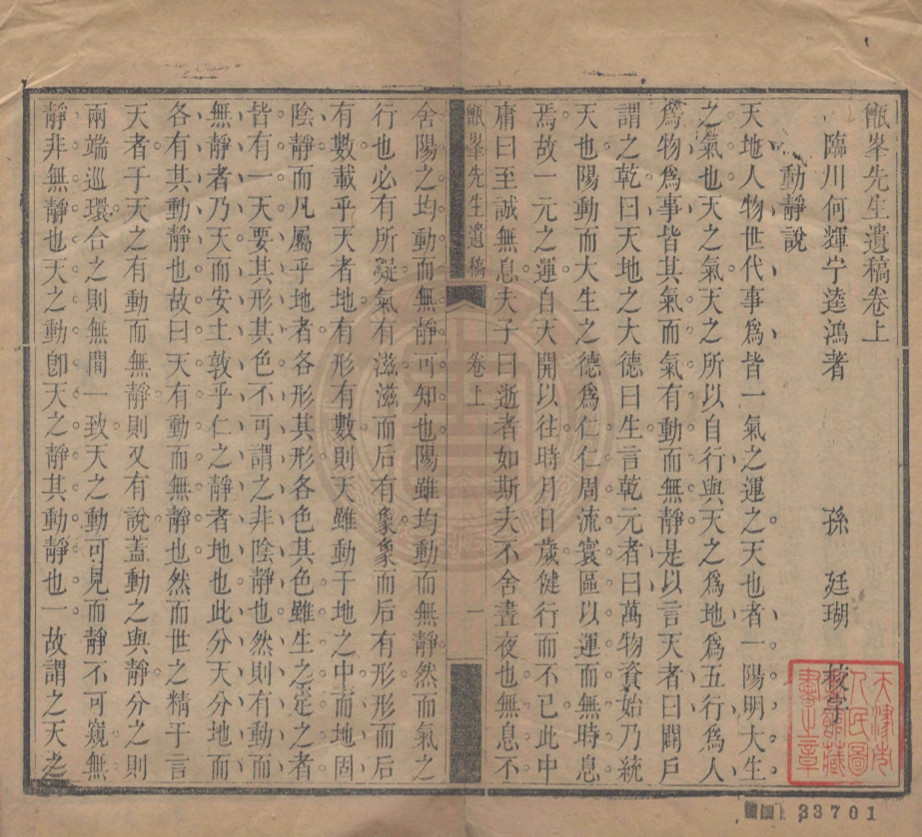 甑峯先生遺稿卷上
臨川何輝宁逵鴻著 孫廷瑚校字
動靜說
天地人物世代事為皆一氣之運之天也者一陽明大生
之氣也天之氣天之所以自行與天之為地為五行為人
為物為事皆其氣而氣有動而無靜是以言天者曰闢戶
謂之乾曰天地之大德曰生言乾元者曰萬物資始乃統
天也陽動而大生之德為仁仁周流寰區以運而無時息
焉故一元之運自天開以往時月日歲健行而不已此中
庸曰至誠無息夫子曰逝者如斯夫不舍晝夜也無息不
甑峯先生遺稿 卷上 一
舍陽之均動而無靜可知也陽雖均動而無靜然而氣之
行也必有所凝氣有滋滋而后有象象而后有形形而后
有數載乎天者地有形有數則天雖動于地之中而地固
陰靜而凡屬乎地者各形其形各色其色雖生之定之者
皆有一天要其形其色不可謂之非陰靜也然則有動而
無靜者乃天而安土敦乎仁之靜者地也此分天分地而
各有其動靜也故曰天有動而無靜也然而世之精于言
天者于天之有動而無靜則又有說蓋動之與靜分之則
兩端巡環合之則無間一致天之動可見而靜不可窺無
靜非無靜也天之動卽天之靜其動靜也一故謂之天之
天津市
人民圖
書館藏
書之章
33701